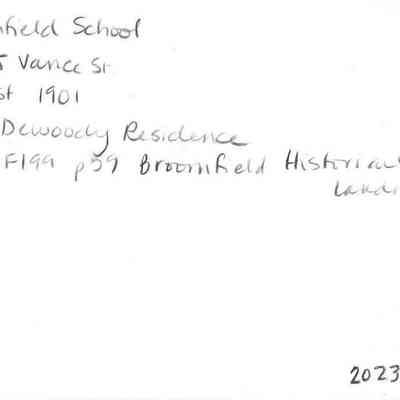 nfield School
5 Vance St.
st 1901
Dewoody Residence
F199 p59 Broomfield Historical
Landm
2023